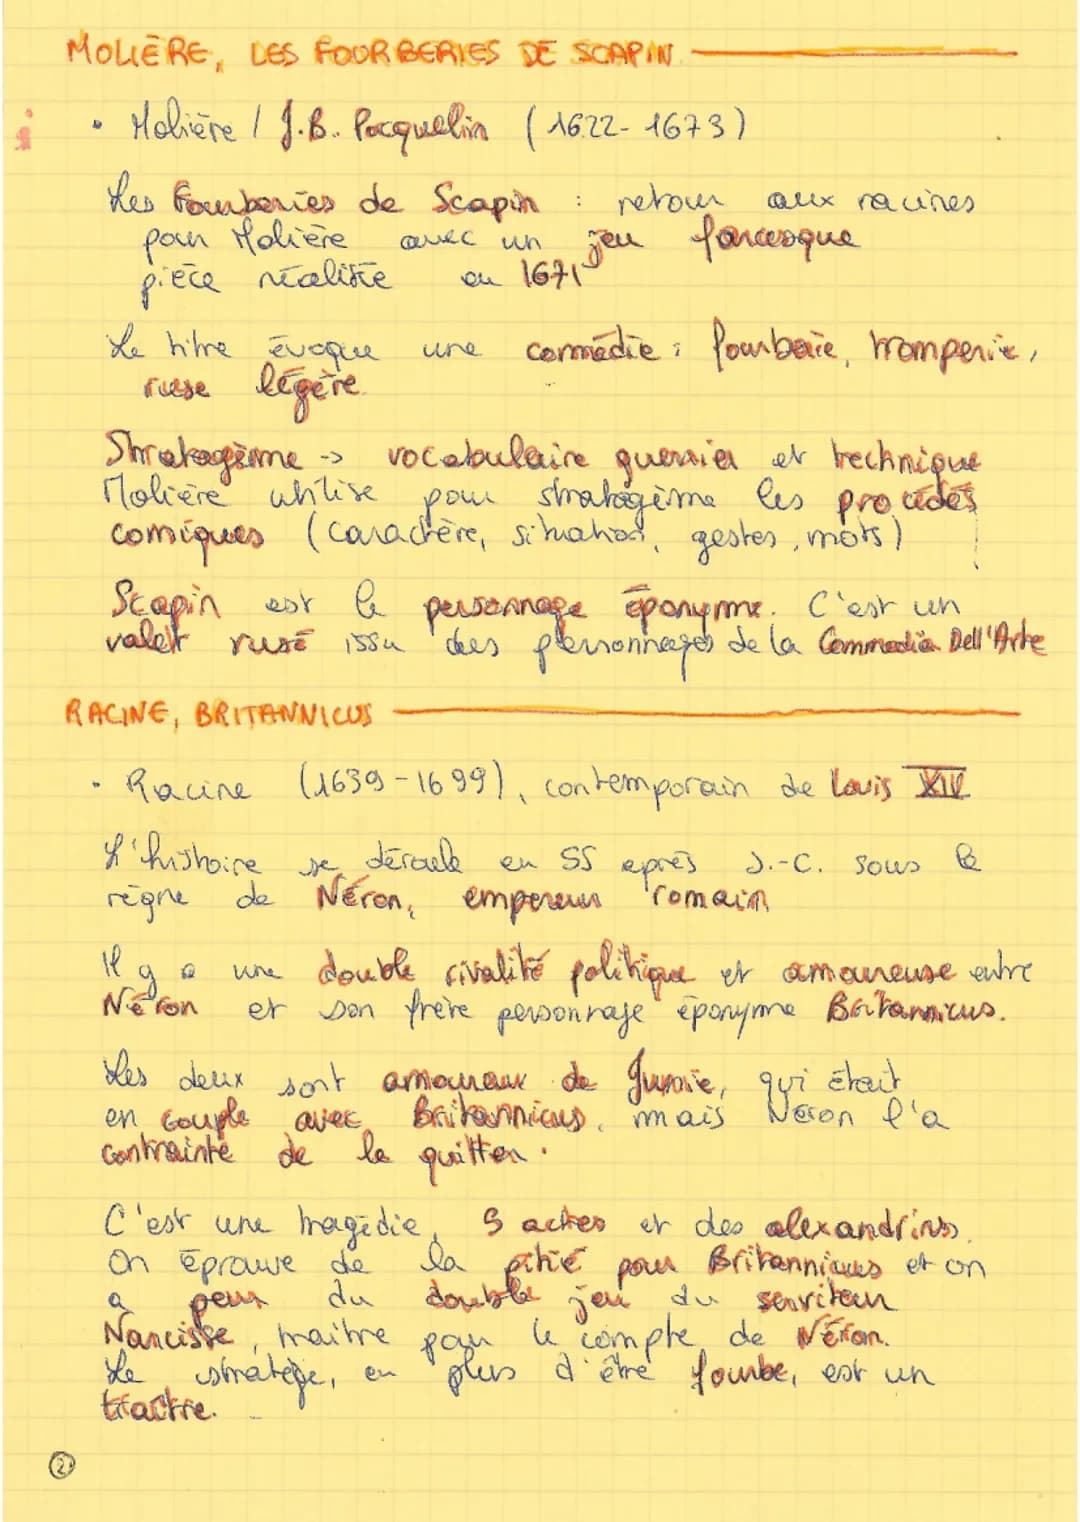 MOLIÈRE, LES FOURBERIES DE SCAPIN
• Molière / J.B. Pocquelin (1622-1673)
Les Fourberies de Scapin : retour aux racines
pour Molière avec un jeu farcesque
pièce réaliste en 1671
Le titre évoque une comédie : fourberie, tromperie,
ruse légère.
Stratagème -> vocabulaire guerrier et technique
Molière utilise pour stratagème les procédés
comiques (caractère, situation, gestes, mots)
Scapin est le personnage éponyme. C'est un
valet rusé issu des personnages de la Commedia Dell'Arte
RACINE, BRITANNICUS
• Racine (1639-1699), contemporain de Louis XIV
L'histoire se déroule en 55 après J.-C. sous le
règne de Néron, empereur romain
Il y a une double rivalité politique et amoureuse entre
Néron et son frère personnage éponyme Britannicus.
Les deux sont amoureux de Junie, qui était
en couple avec Britannicus, mais Néron l'a
contrainte de le quitter.
C'est une tragédie, 5 actes et des alexandrins.
On éprouve de la pitié pour Britannicus et on
a peur du double jeu du serviteur
Narcisse, traitre pour le compte de Néron.
Le stratège, en plus d'être fourbe, est un
traître.
2